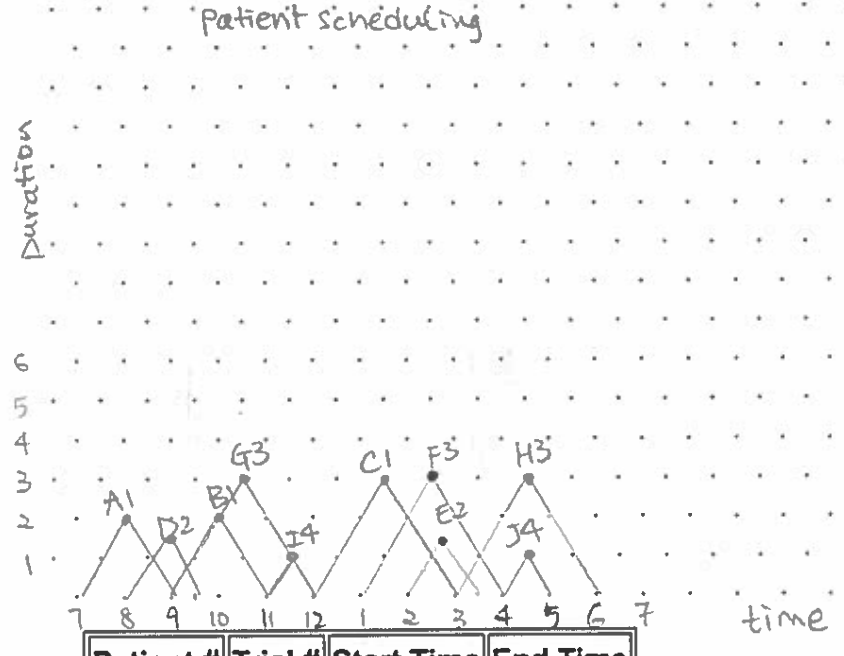 Patient scheduling
Duration
6
5
4
3
2
1
A1
D2
B1
G3
I4
C1
F3
E2
H3
J4
7 8 9 10 11 12 1 2 3 4 5 6 7 time
Patient# Trial# Start Time End Time